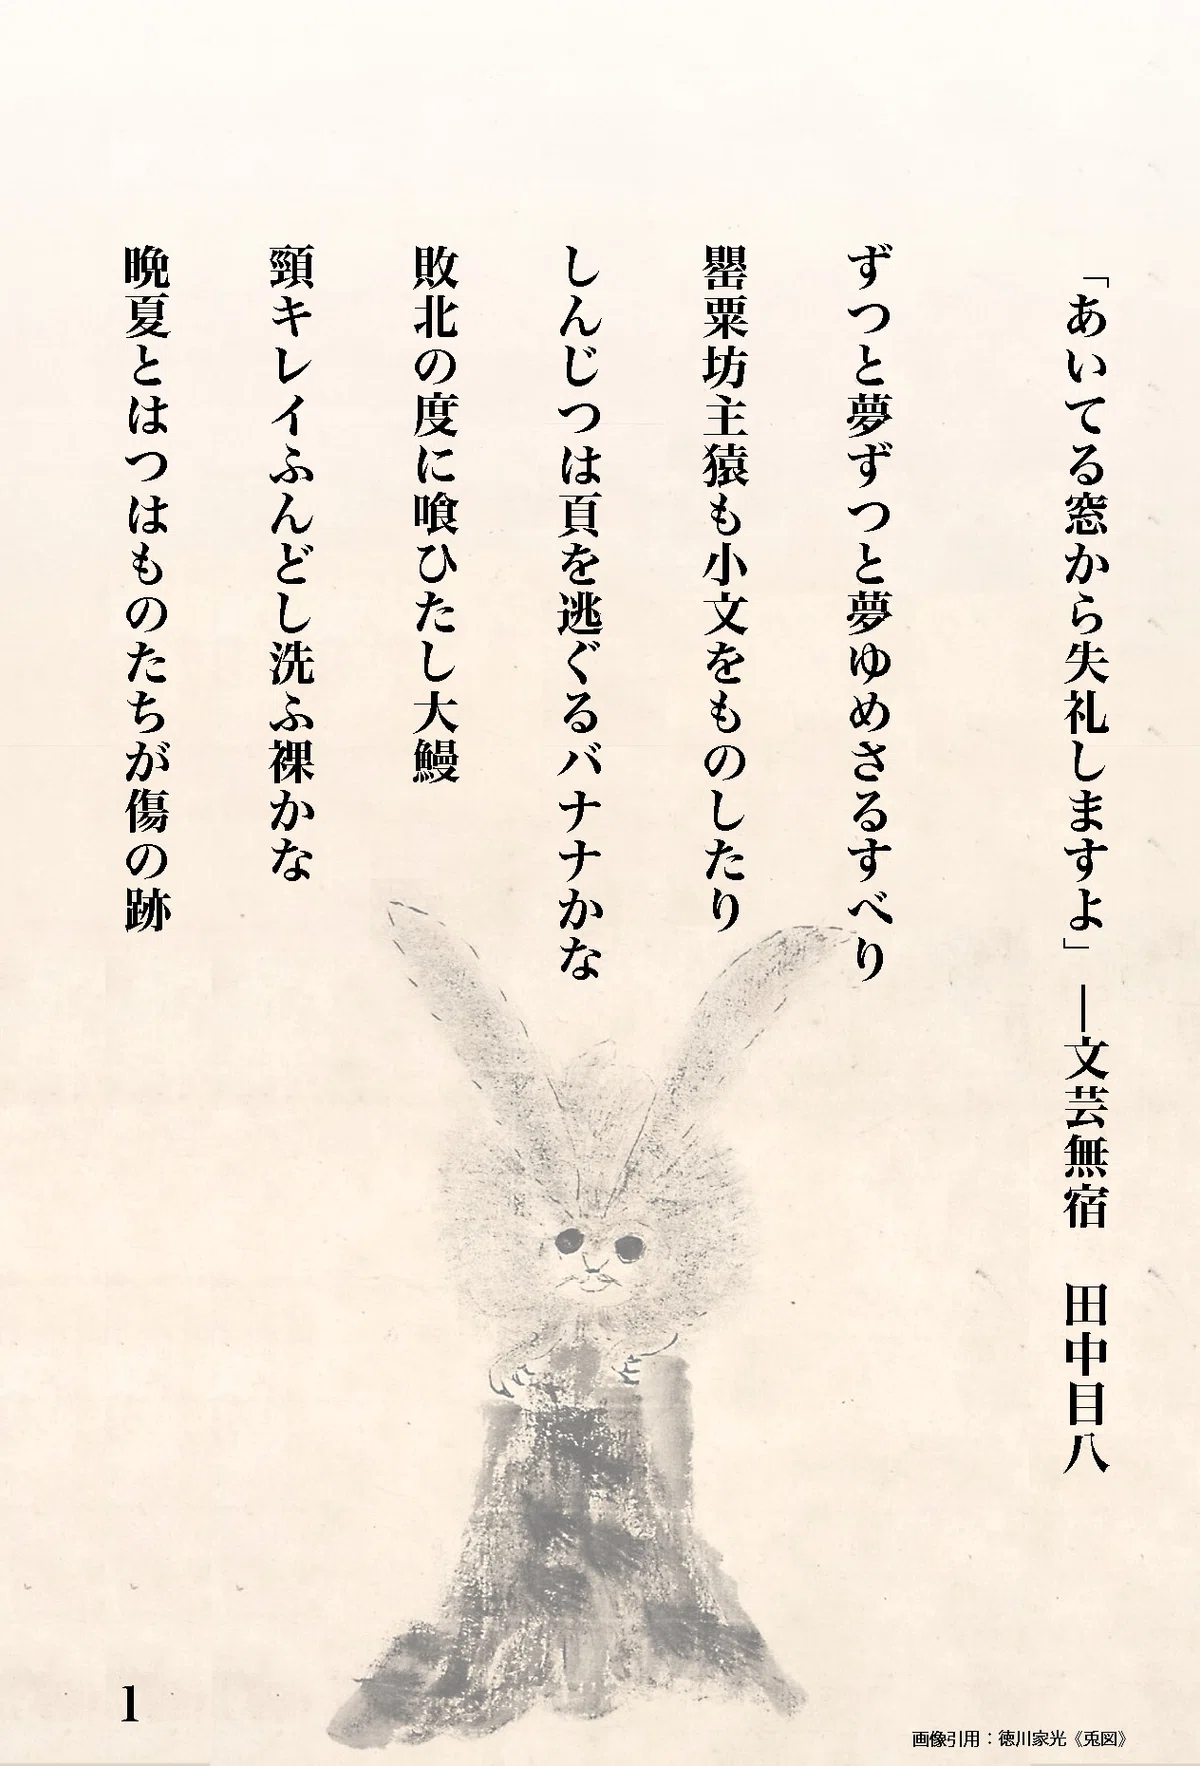 「あいてる窓から失礼しますよ」―文芸無宿　田中目八
ずつと夢ずつと夢ゆめさるすべり
罌粟坊主猿も小文をものしたり
しんじつは頁を逃ぐるバナナかな
敗北の度に喰ひたし大鰻
頸キレイふんどし洗ふ裸かな
晩夏とはつはものたちが傷の跡
1
画像引用：徳川家光《兎図》